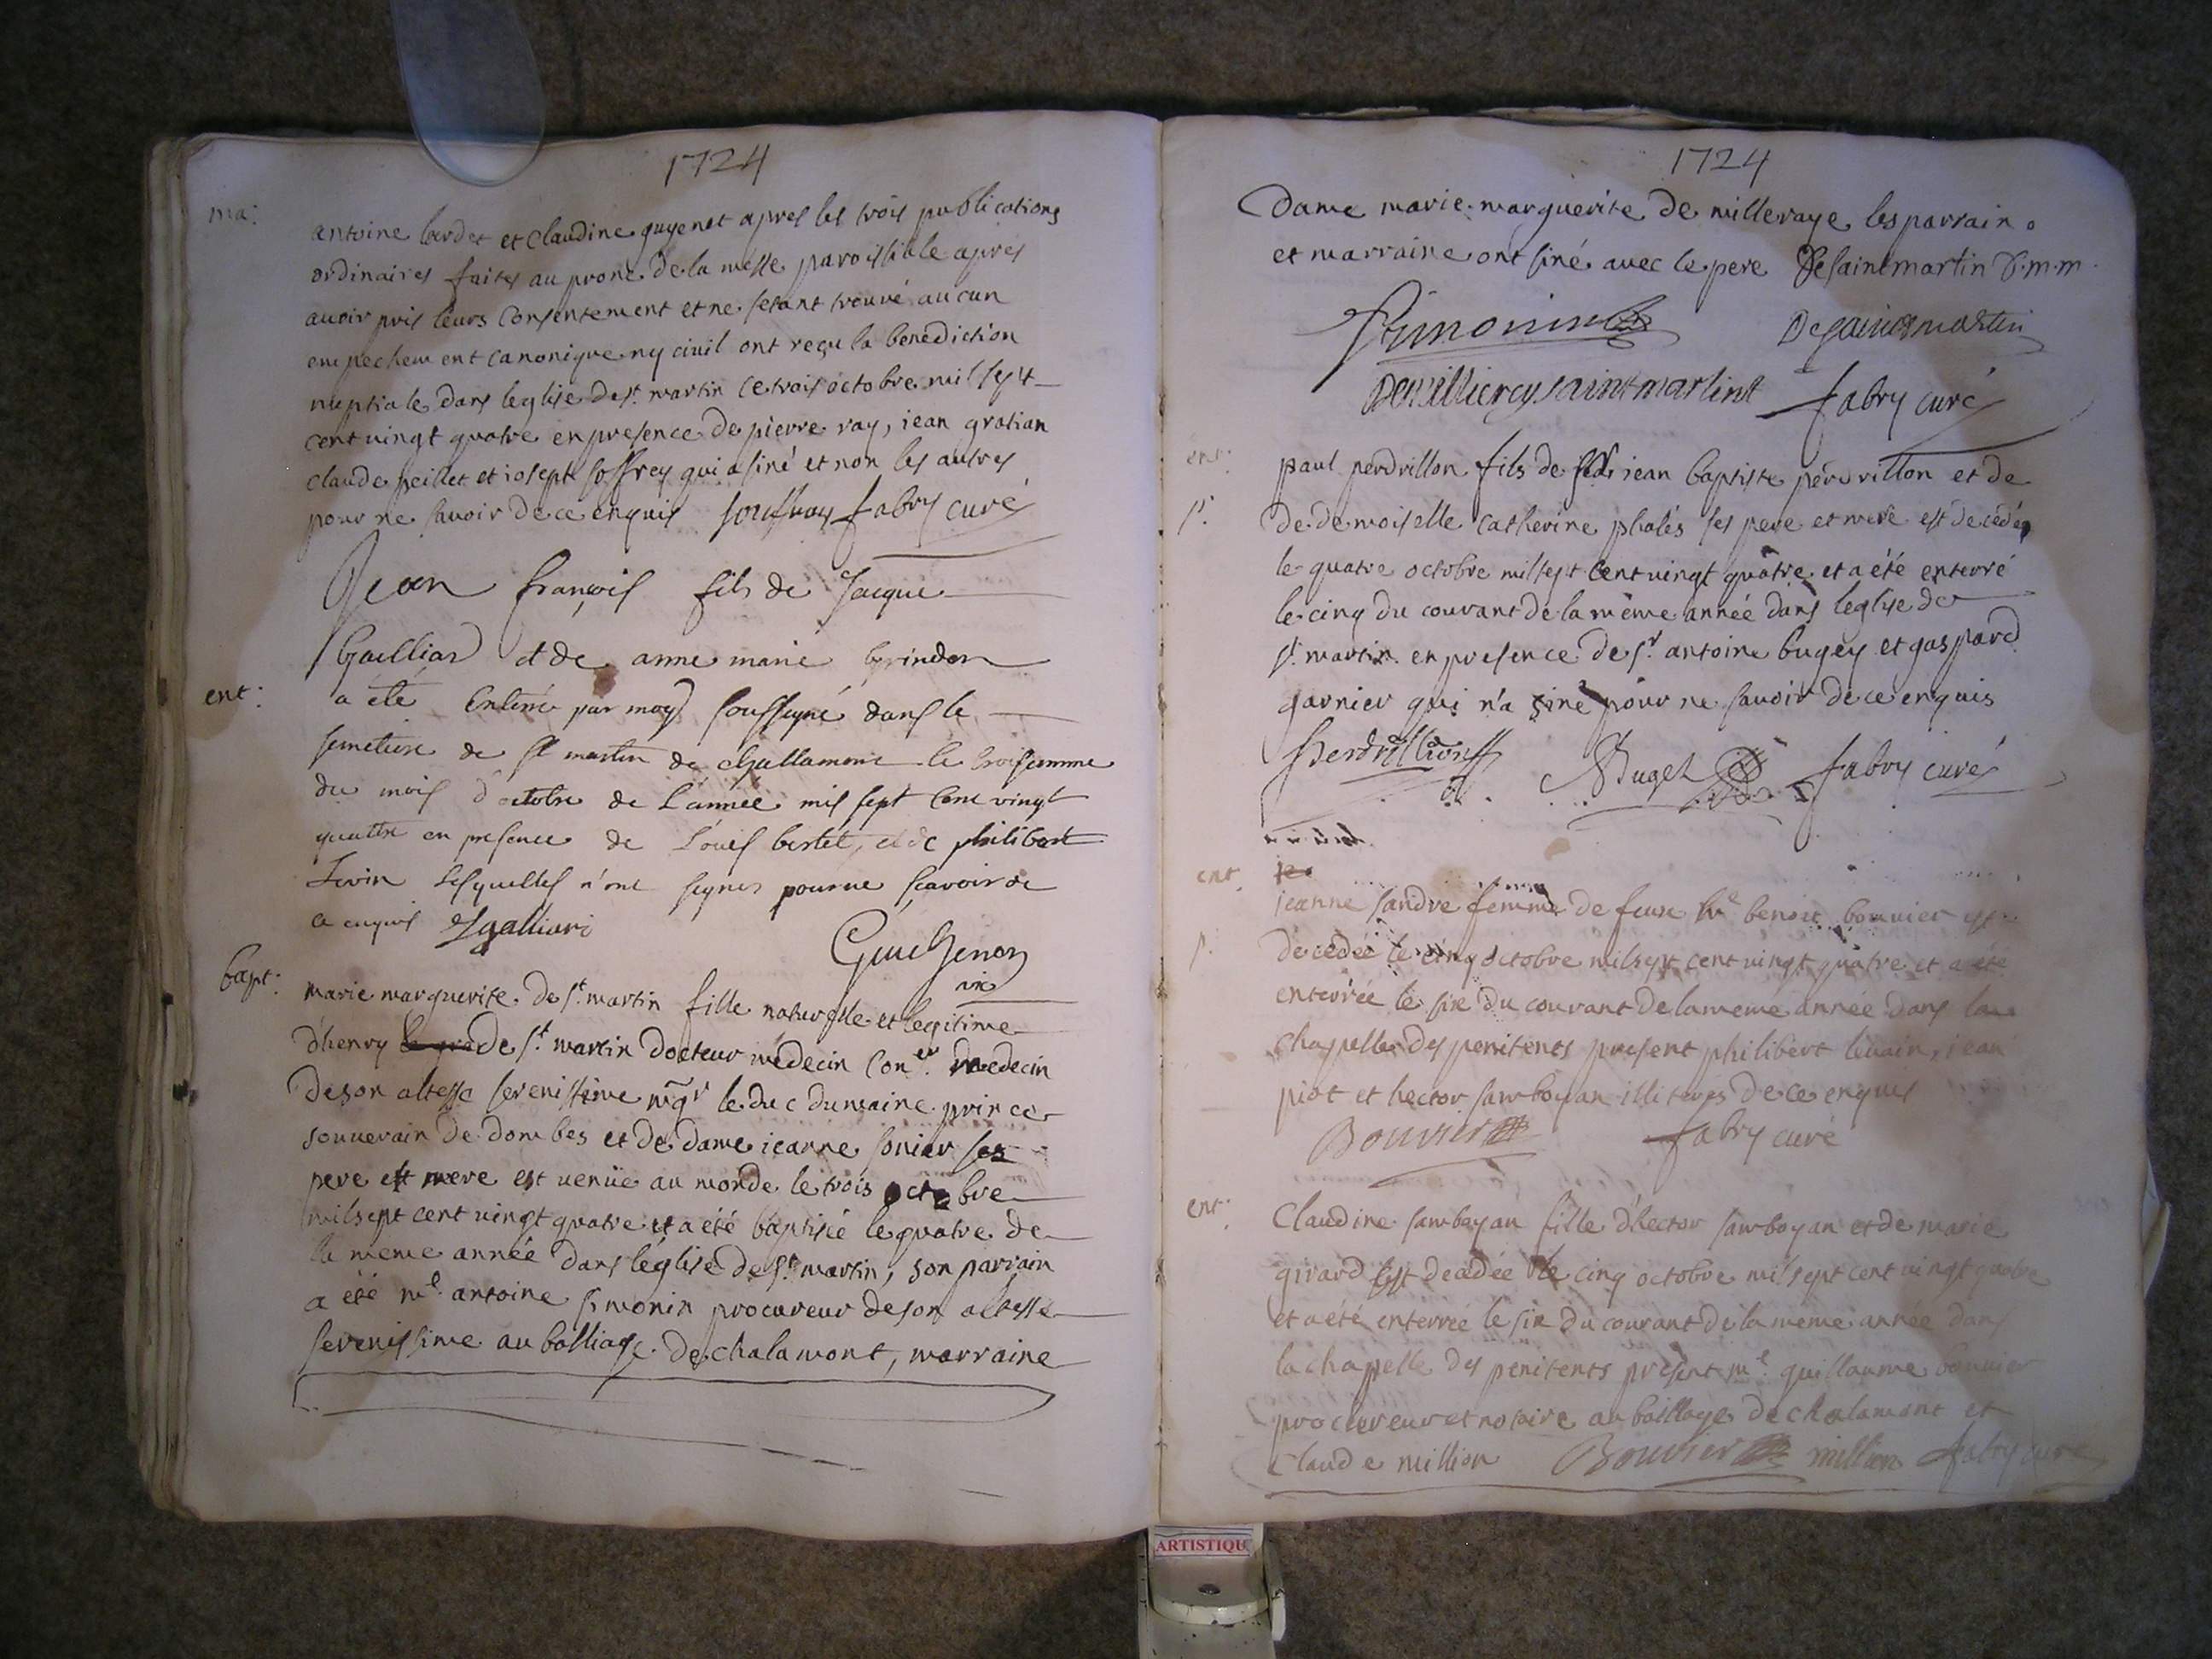 1724
ma:
antoine lardet et claudine guyenet apres les trois publications
ordinaires faites au prone de la messe paroissiale apres
auoir pris leurs consentement et ne setant trouvé aucun
empechement canonique ny ciuil ont reçu la benediction
nuptiale dans leglise de st. martin le trois octobre mil sept
cent uingt quatre en presence de pierre ray, iean gratian
claude peillet et iosept soffrey qui a siné et non les autres
pour ne sauoir de ce enquis souffray fabry curé
Jean françois fils de Jacque
Gailliar et de anne marie grindon
ent:
a été enterré par moy soussigné dans le
semetiere de st martin de challamont le troisiemme
du mois d'octobre de l'année mil sept cent vingt
quattre en presence de Louis bertet, et de philibert
lesquelles n'ont signer pour ne scavoir de
ce enquis Jgalliari
Guichenon
vic
bapt:
marie marguerite de st. martin fille naturelle et legitime
d'henry de st. martin docteur medecin con.er medecin
de son altesse serenissime mgr le duc dumaine prince
souuerain de dombes et de dame ieanne sonier ses
pere et mere est uenüe au monde le trois octobre
mil sept cent uingt quatre et a été baptisée le quatre de
la meme année dans léglise de st. martin, son parrain
a été me. antoine simonin procureur de son altesse
serenissime au balliage de chalamont, marraine
1724
dame marie marguerite de milleraye les parrain
et marraine ont siné avec le pere De saint martin d.m.m.
Simonin
De saint martin
fabry curé
ent:
paul perdrillon fils de iean baptiste perdrillon et de
s.
de demoiselle catherine phalés ses pere et mere est decedé
le quatre octobre mil sept cent uingt quatre et a été enterré
le cinq du courant de la même année dans léglise de
st. martin en presence de sr. antoine bugey et gaspard
garnier qui n'a siné pour ne sauoir de ce enquis
Perdrillion
ABugey
fabry curé
ent.
ieanne sandre femme de feux me benoit bouuier est
s.
decedée le cinq octobre mil sept cent uingt quatre et a été
enterrée le six du courant de la meme année dans la
chapelle des penitents present philibert iean
piot et hector samboyan illiteres de ce enquis
Bouvier
fabry curé
ent.
Claudine samboyan fille d'hector samboyan et de marie
girard est decedée le cinq octobre mil sept cent uingt quatre
et a été enterrée le six du courant de la meme année dans
la chapelle des penitents present me. guillaume bouuier
procureur et notaire au balliage de chalamont et
claude million Bouvier million fabry curé
ARTISTIQU